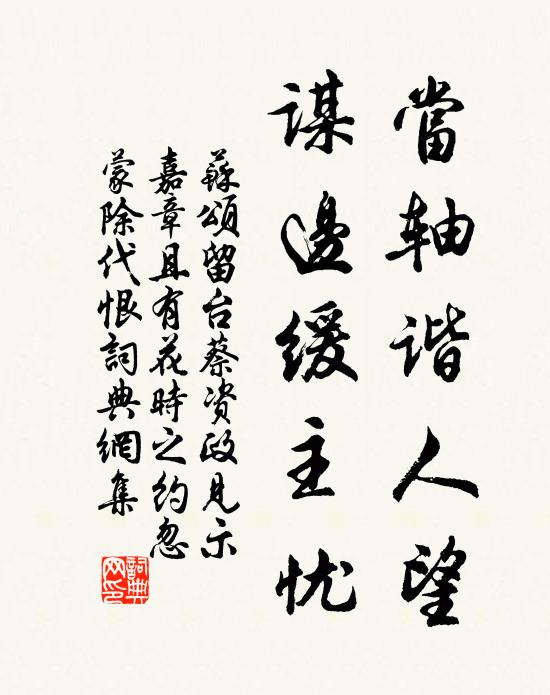 當軸谐人望
謀邊緩主忧
蘇頌留台蔡资政見示
嘉章且有花時之約忽
蒙除代恨詞典網集
詞典
网印